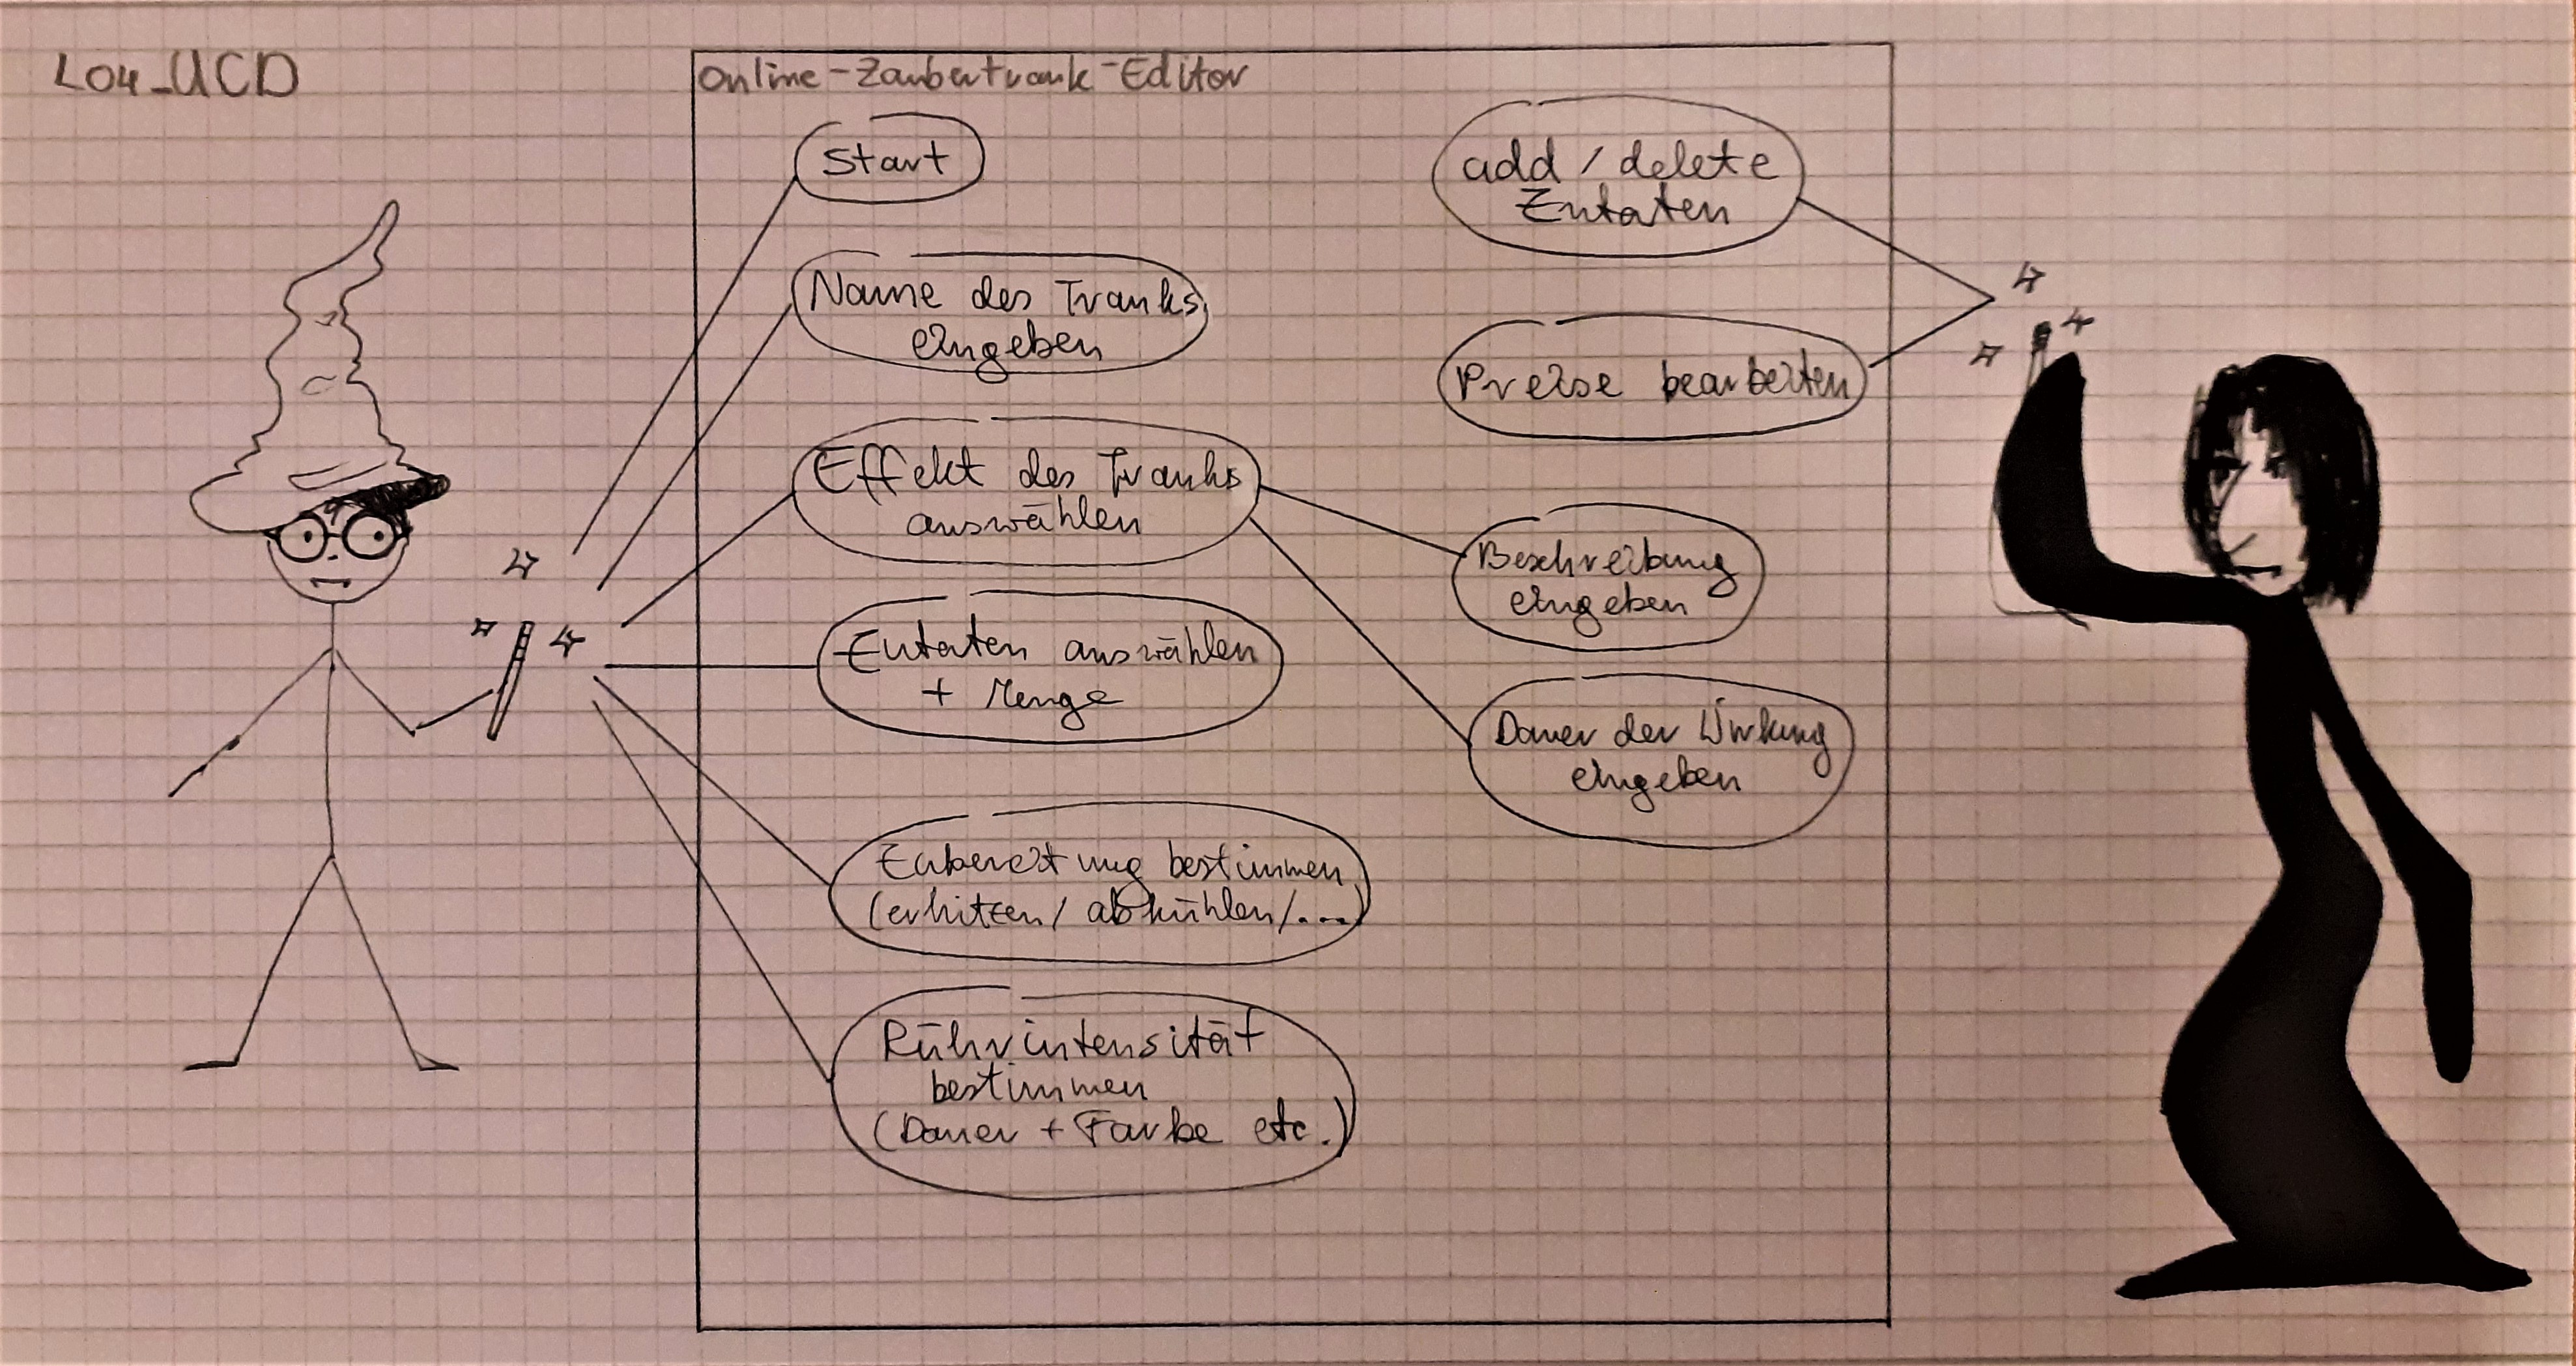 L04_UCD
Online-Zaubertrank-Editor
Start
Name des Tranks
eingeben
Effekt des Tranks
auswählen
Zutaten auswählen
+ Menge
Zubereitung bestimmen
(erhitzen/ abkühlen/....)
Rührintensität
bestimmen
(Dauer + Farbe etc.)
add / delete
Zutaten
Preise bearbeiten
Beschreibung
eingeben
Dauer der Wirkung
eingeben